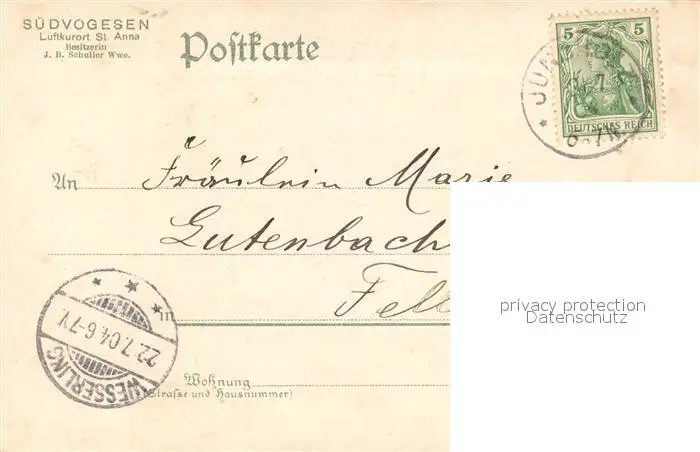 SÜDVOGESEN
Luftkurort St. Anna
Besitzerin
J. B. Schuller Wwe.
Postkarte
5 5
DEUTSCHES REICH
6-7N
An Fräulein Marie
Gutenbach
in Fell
privacy protection
Datenschutz
22.7.04.6-7V.
WESSERLING
Wohnung
(Strasse und Hausnummer)